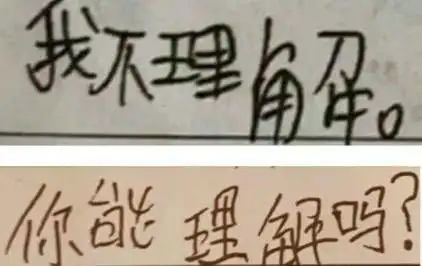 我不理解。
你能理解吗?